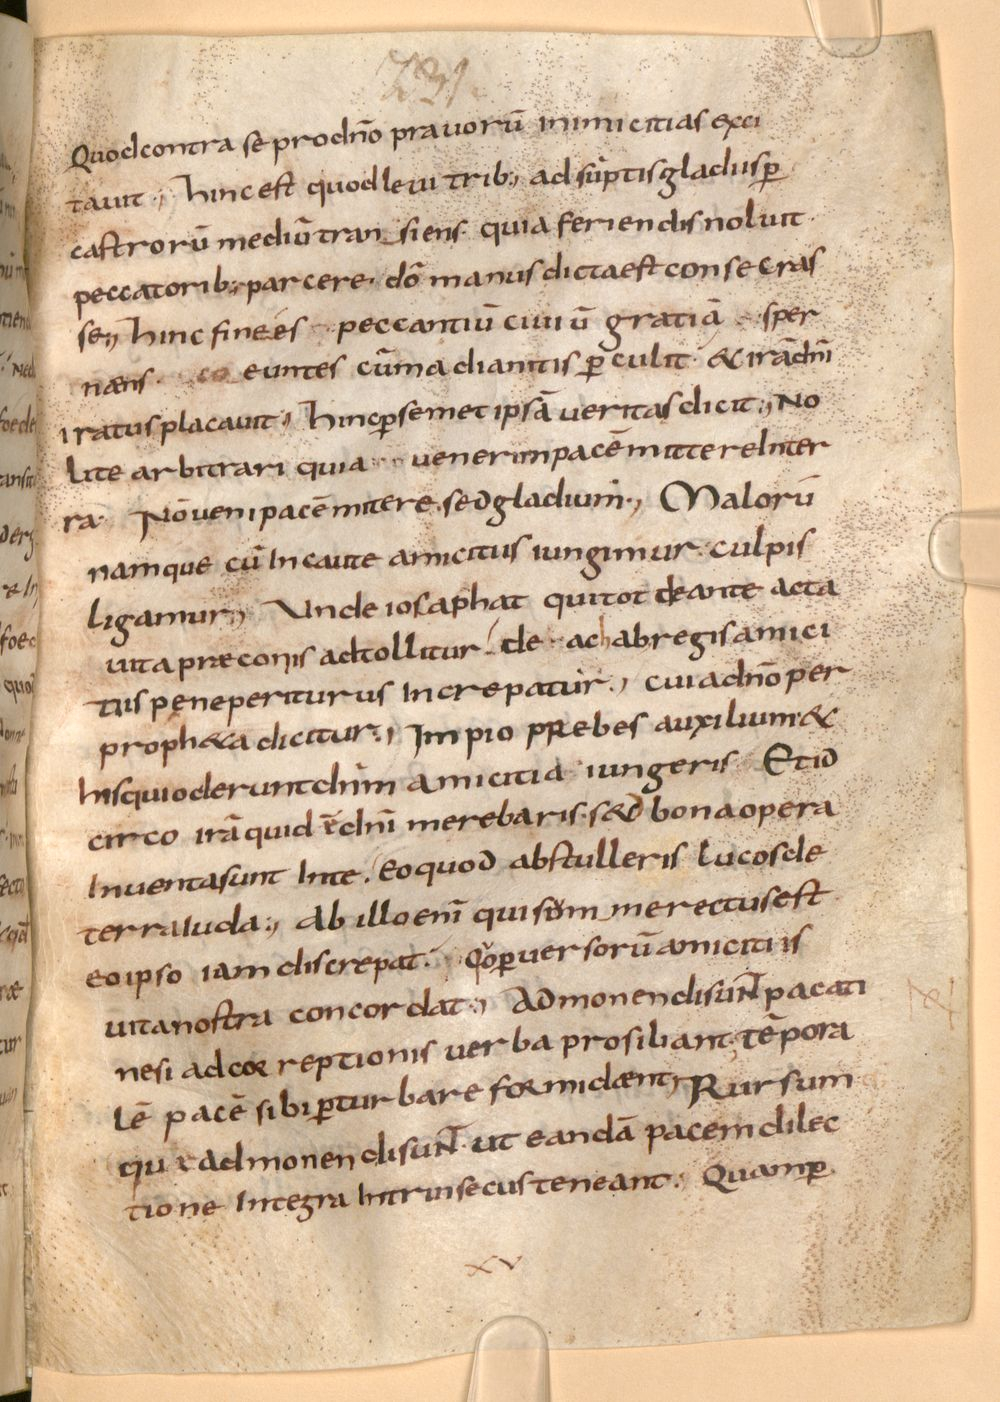 231.
Quod contra se pro dn̄o prauorū inimicitias exci
tauit; hinc est quod leui trib; adsūptis gladiis ꝑ
castrorū mediū transiens. quia feriendis noluit
peccatorib; parcere. dō manus dicta est consecras
se; hinc finees peccantiū ciuiū gratiā sper
næns. coeuntes cū madianitis ꝑculit. & irā dn̄i
iratus placauit; hinc ꝑ semet ipsā ueritas dicit; No
lite arbitrari quia uenerim pacē mittere In ter
ra. Nō ueni pacē mitere. sed gladium; Malorū
namque cū Incaute amicitiis iungimur. culpis
ligamur; Unde iosaphat qui tot de ante acta
uita præconiis adtollitur. de achab regis amici
tiis pene periturus Increpatur; cui a dn̄o per
proph&a dicitur; Impio prebes auxilium &
his qui oderunt dn̄m amicitia iungeris. Et id
circo irā quidē dn̄i merebaris. sed bona opera
Inuenta sunt In te. Eo quod abstulleris lucos de
terra iuda; Ab illo enī qui summe rectus est
eo ipso iam discrepat. Qđ ꝑuersorū amicitiis
uita nostra concordat; Admonendi suNt pacati
ne si ad correptionis uerba prosiliant. tēpora
lē pacē sibi ꝑturbare formidænt; Rursum
que admonendi suNt. ut eandā pacem dilec
tione Integra Intrinsecus teneant; Quam ꝑ
xv